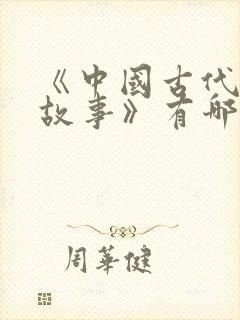 《中國古代
故事》有哪
周華健